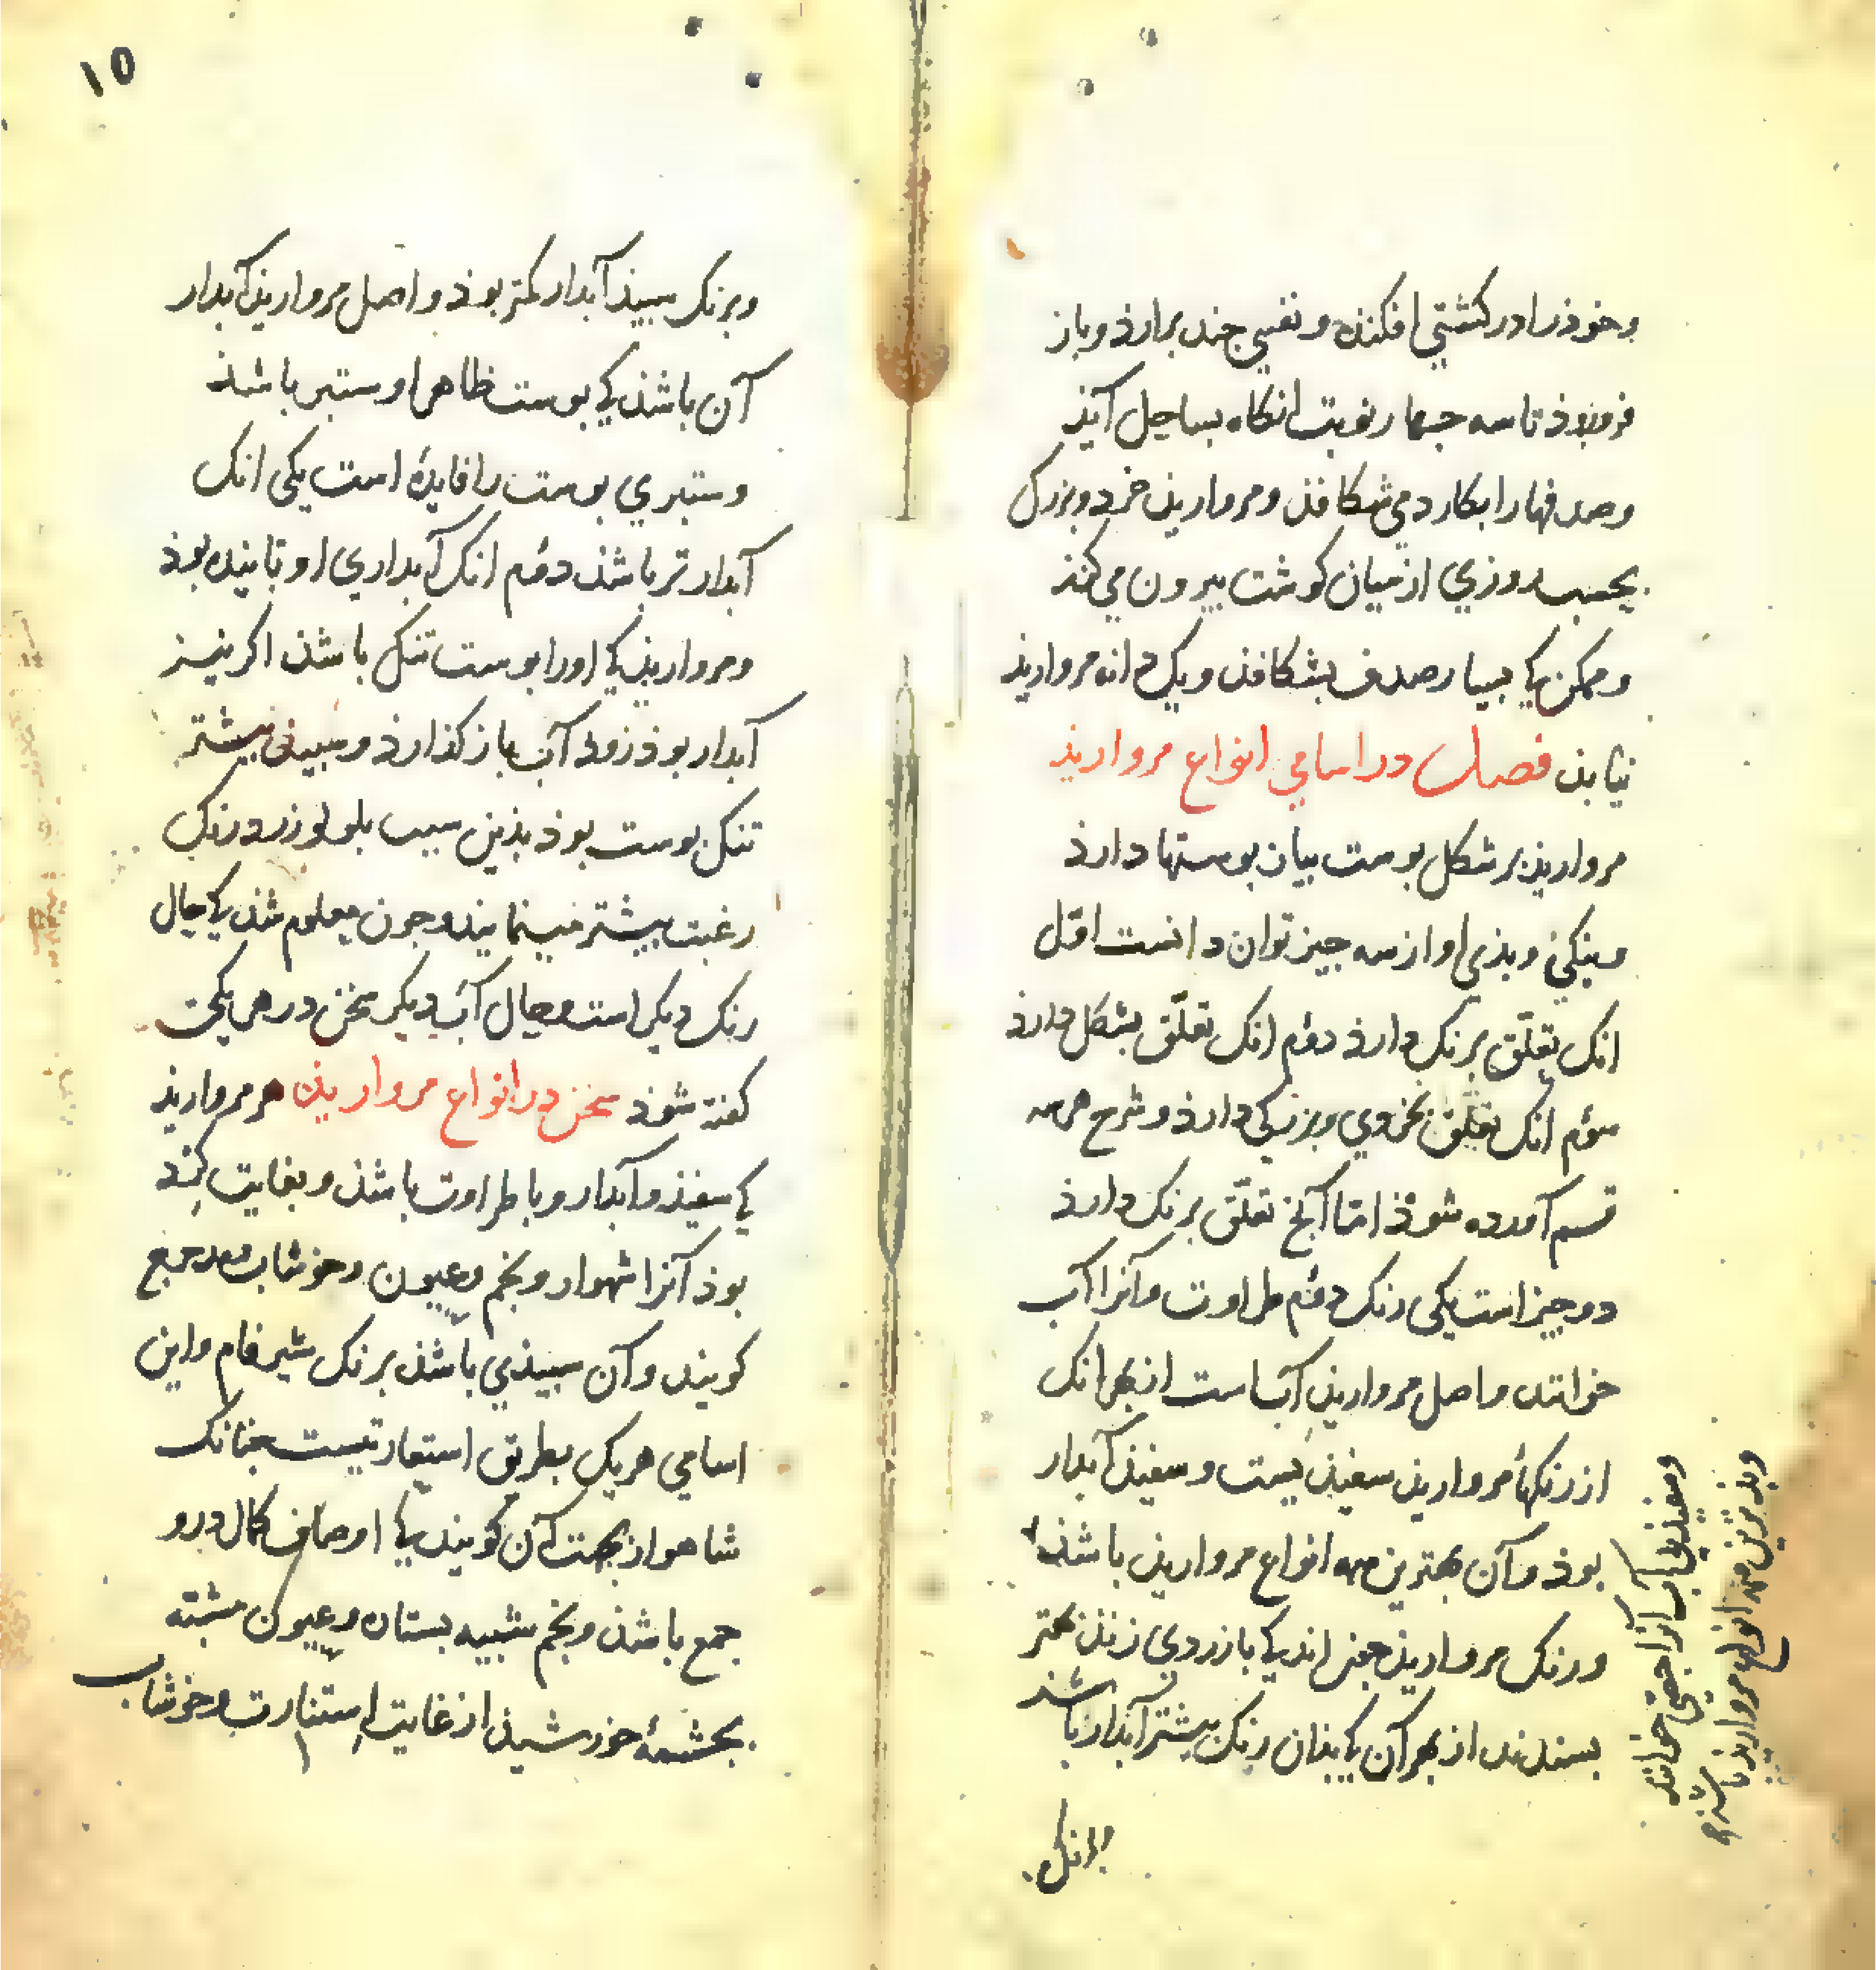 وخوذ را در کشتی افکنده و نفسی جند برارذ و باز
فروبوذ تا سه جهار نوبت انکاه بساحل آیذ
وصدفها را بکارد می شکافذ و مرواریذ خرد و بزرک
بحسب روزی از میان کوشت بیرون می کند
وممکن کی بسیار صدف بشکافذ و یک دانه مرواریذ
نیابذ فصل در اسامی انواع مرواریذ
مرواریذ بر شکل بوست بیاز بوستها دارذ
ونیکی و بذی او از سه جیز توان دانست اول
انک تعلّق برنک دارذ دوُم انک تعلّق بشکل دارذ
سوُم انک تعلّق بخردی و بزرکی دارذ و شرح هر سه
قسم آورده شوذ امّا آنج تعلّق برنک دارذ
دو جیز است یکی رنک دوُم طراوت و آنرا آب
خوانند و اصل مرواریذ آب است از بهر انک
از رنکهاء مرواریذ سفیذیست و سفیذ آبدار
بوذ و آن بهترین همه انواع مرواریذ باشذ
ورنک مرواریذ جنانذ کی با زردی زند بهتر
بسندند از بهر آن کی بذان رنک بیشتر آبدار باشذ
وبرنک
وسفیذ بی آب آنرا جصّی خوانند
وبذترین همه انواع مرواریذ باشذ
١٥
وبرنک سبیذ آبدار کمتر بوذ و اصل مرواریذ آبدار
آن باشذ کی بوست ظاهر او ستبر باشذ
وستبری بوست را فایدهٔ است یکی انک
آبدارتر باشذ دوُم انک آبداری او تاینده بوذ
ومرواریذ کی اورا بوست تنک باشذ اکر نیز
آبدار بوذ زوذ آب باز کذارذ و سبیذی بیشتر
تنک بوست بوذ بذین سبب بلولو زرد رنک
رغبت بیشتر مینمایند و جون معلوم شذ کی حال
رنک دیکر است و حال آب دیکر سخن در هر یکی
کفته شوذ سخن در انواع مرواریذ هر مرواریذ
کی سفیذ و آبدار و با طراوت باشذ و بغایت کِرد
بوذ آنرا شهوار و نجم و عیون و خوشاب
کویند و آن سبیذی باشذ برنک شیرفام و این
اسامی هر یک بطریق استعارتیست جنانک
شاهوار بجهت آن کویند کی اوصاف کمال درو
جمع باشذ و نجم شبیه بستاره و عیون مشبّه
بجشمهٔ خورشیذ از غایت اِستنارت و خوشاب